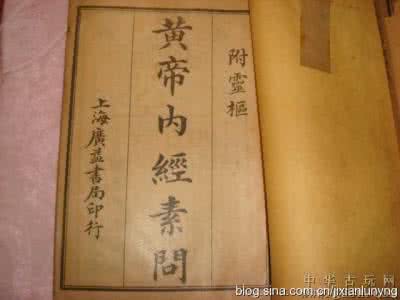 附靈樞
黄帝内經素問
上海廣益書局印行
中华古玩网
blog.sina.com.cn/jixianlunyng